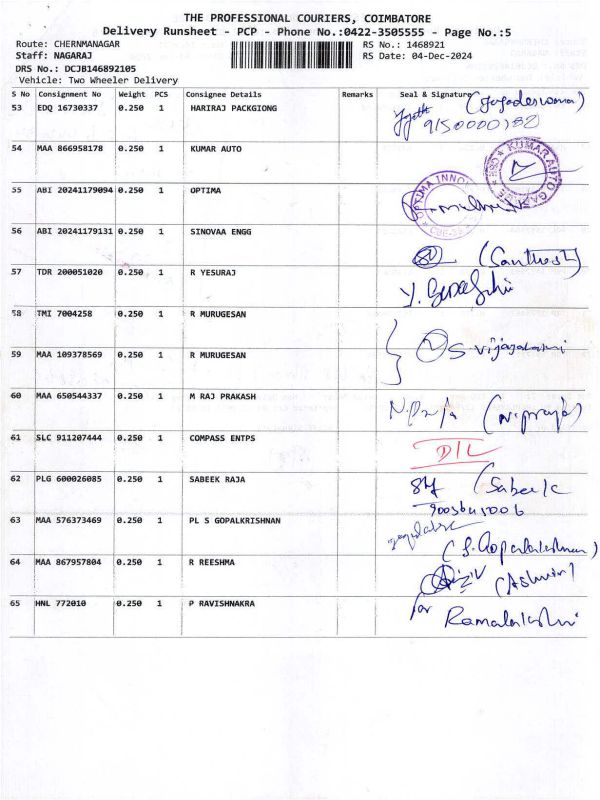 THE PROFESSIONAL COURIERS, COIMBATORE
Delivery Runsheet - PCP - Phone No.:0422-3505555 - Page No.:5
Route: CHERNMANAGAR RS No.: 1468921
Staff: NAGARAJ RS Date: 04-Dec-2024
DRS No.: DCJB146892105
Vehicle: Two Wheeler Delivery
S No Consignment No Weight PCS Consignee Details Remarks Seal & Signature
53 EDQ 16730337 0.250 1 HARIRAJ PACKGIONG
9150000782
54 MAA 866958178 0.250 1 KUMAR AUTO
KUMAR AUTO
55 ABI 20241179094 0.250 1 OPTIMA
OPTIMA INNO
56 ABI 20241179131 0.250 1 SINOVAA ENGG (Santhosh)
57 TDR 200051020 0.250 1 R YESURAJ
58 TMI 7004258 0.250 1 R MURUGESAN
59 MAA 109378569 0.250 1 R MURUGESAN
60 MAA 650544337 0.250 1 M RAJ PRAKASH
61 SLC 911207444 0.250 1 COMPASS ENTPS D/L
62 PLG 600026085 0.250 1 SABEEK RAJA (Sabeek
63 MAA 576373469 0.250 1 PL S GOPALKRISHNAN
(S. Gopalakrishnan)
64 MAA 867957804 0.250 1 R REESHMA (Ashwin)
65 HNL 772010 0.250 1 P RAVISHNAKRA for
Ramalakshmi